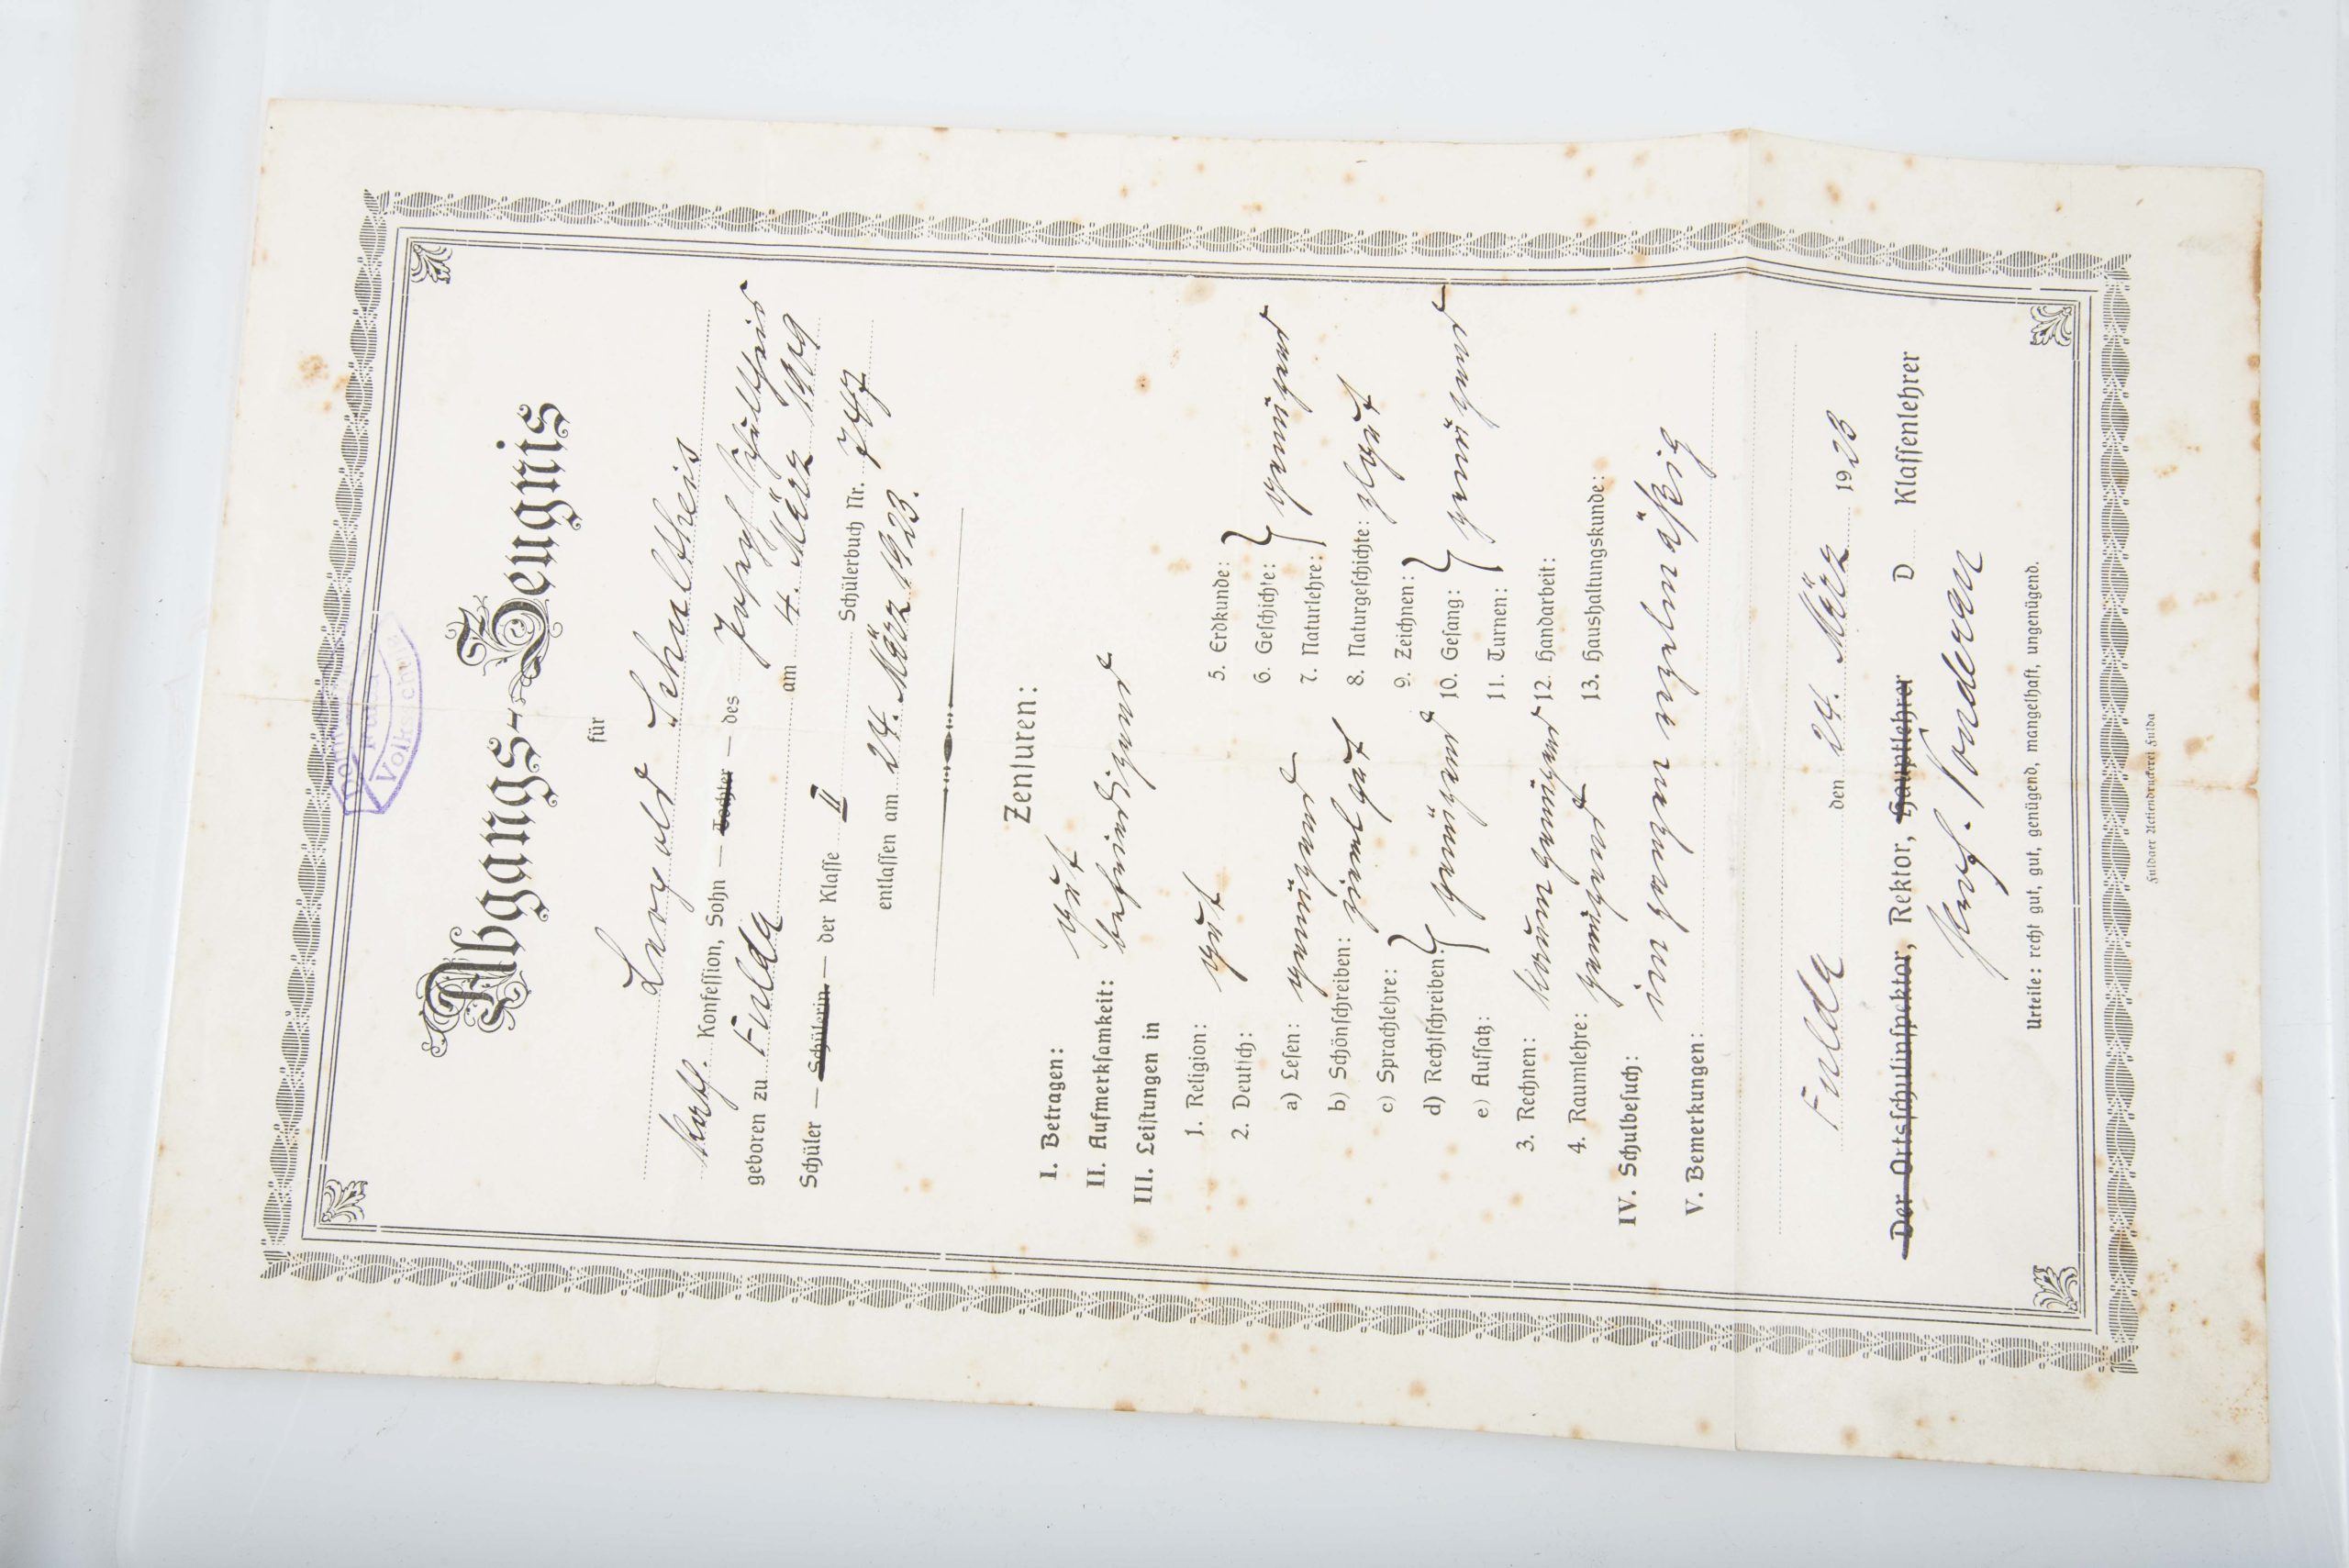 Volksschule
Abgangs-Zeugnis
für
Leopold Schultheis
kath. Konfession, Sohn — Tochter — des Joseph Schultheis
geboren zu Fulda am 4. März 1909
Schüler — Schülerin — der Klasse II Schülerbuch Nr. 747
entlassen am 24. März 1923.
Zensuren:
I. Betragen: gut
II. Aufmerksamkeit: befriedigend
III. Leistungen in
1. Religion: gut
2. Deutsch:
a) Lesen: genügend
b) Schönschreiben: ziemlich gut
c) Sprachlehre:
d) Rechtschreiben: genügend
e) Aufsatz:
3. Rechnen: kaum genügend
4. Raumlehre: genügend
5. Erdkunde:
6. Geschichte: genügend
7. Naturlehre:
8. Naturgeschichte: zl. gut
9. Zeichnen:
10. Gesang: genügend
11. Turnen:
12. Handarbeit:
13. Haushaltungskunde:
IV. Schulbesuch: im ganzen regelmäßig
V. Bemerkungen:
Fulda den 24. März 1923
Der Ortsschulinspektor, Rektor, Hauptlehrer D Klassenlehrer
Urteile: recht gut, gut, genügend, mangelhaft, ungenügend.
Fuldaer Actiendruckerei Fulda